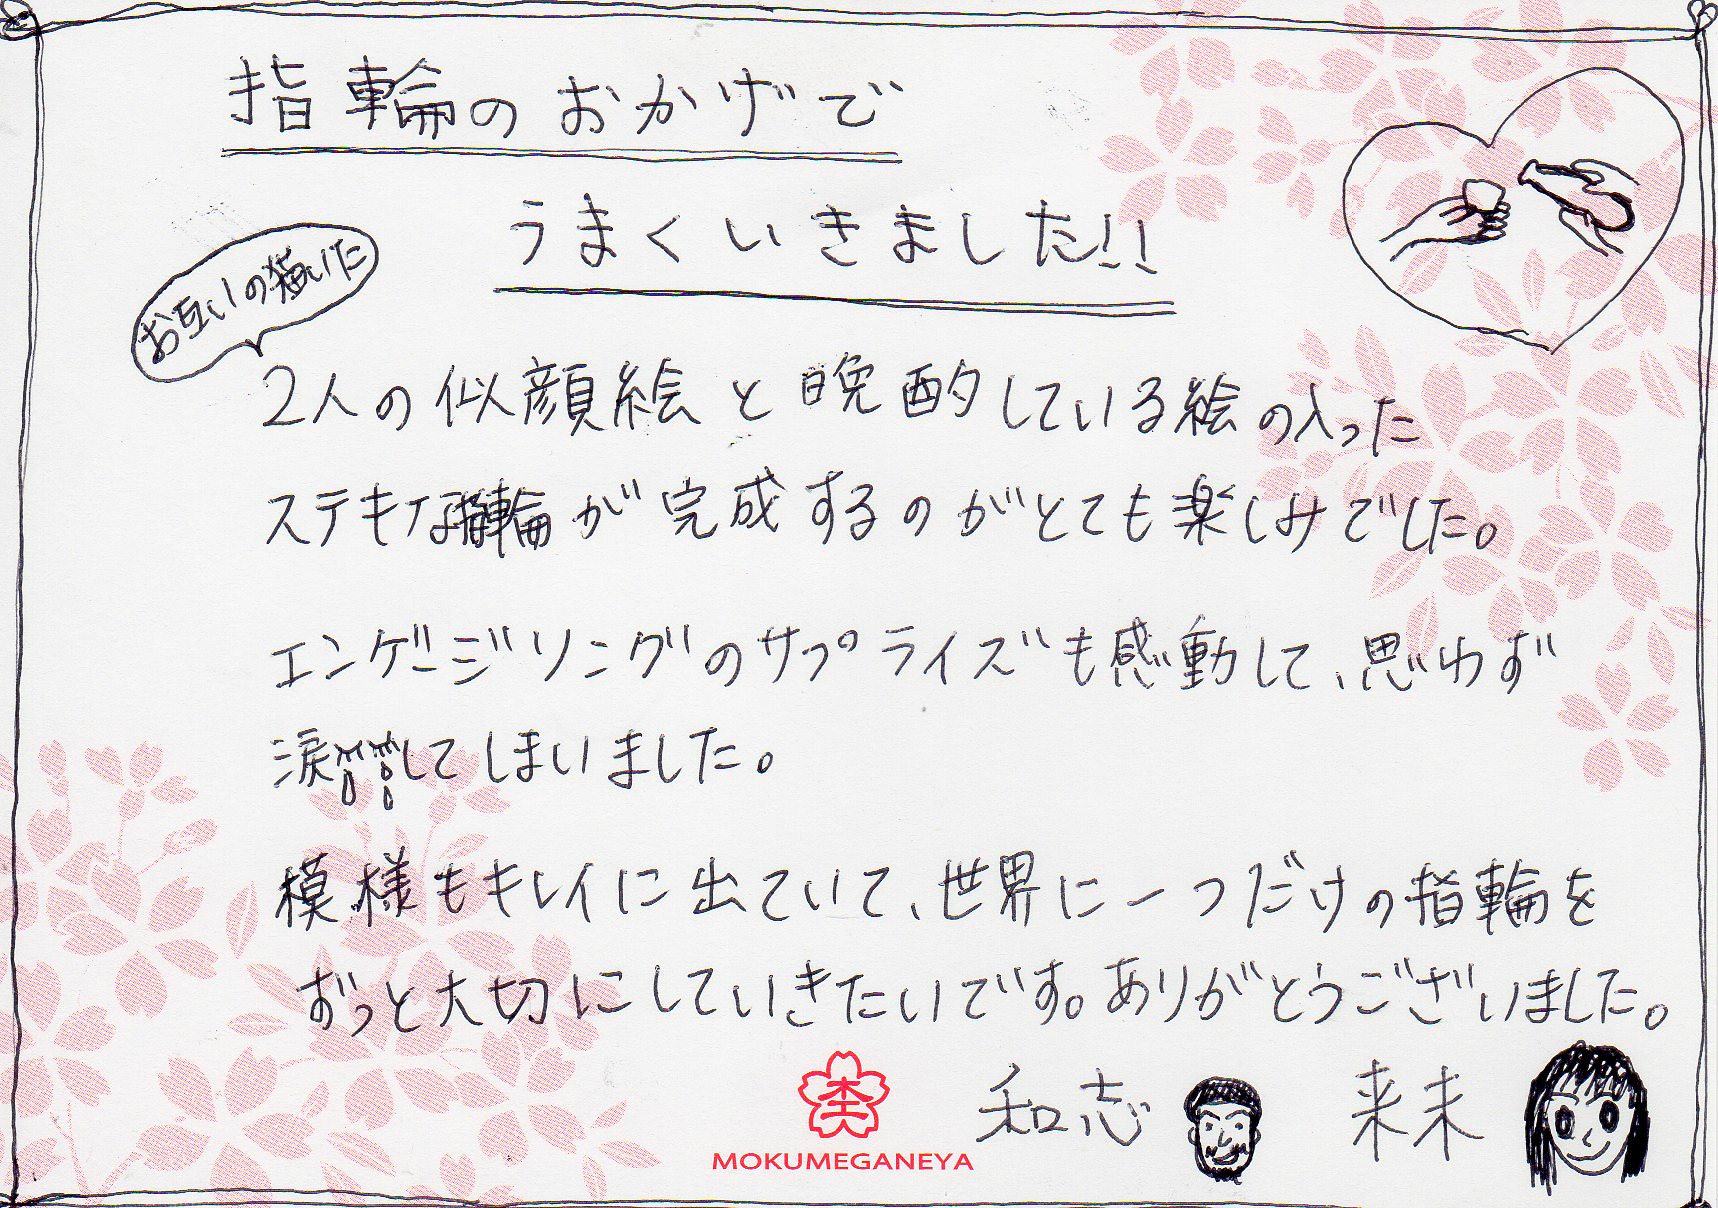 指輪のおかげで
うまくいきました!!
お互いの描いた
2人の似顔絵と晩酌している絵の入った
ステキな指輪が完成するのがとても楽しみでした。
エンゲージリングのサプライズも感動して、思わず
涙してしまいました。
模様もキレイに出ていて、世界に一つだけの指輪を
ずっと大切にしていきたいです。ありがとうございました。
和志 来未
MOKUMEGANEYA